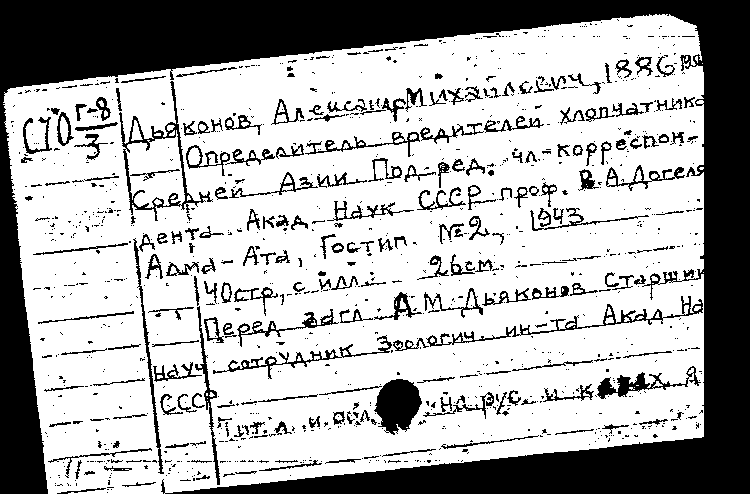 С10 Г-8/3
Дьяконов, Александр Михайлович, 1886
Определитель вредителей хлопчатника
Средней Азии. Под ред. чл.-корреспон-
дента Акад. Наук СССР проф. В.А. Догеля
Алма-Ата, Гостип. №2, 1943
40стр, с илл. 26см.
Перед загл: А.М. Дьяконов Старший
Науч. сотрудник Зоологич. ин-та Акад. На
СССР.
Тит. л. и обл. на рус. и казах. я